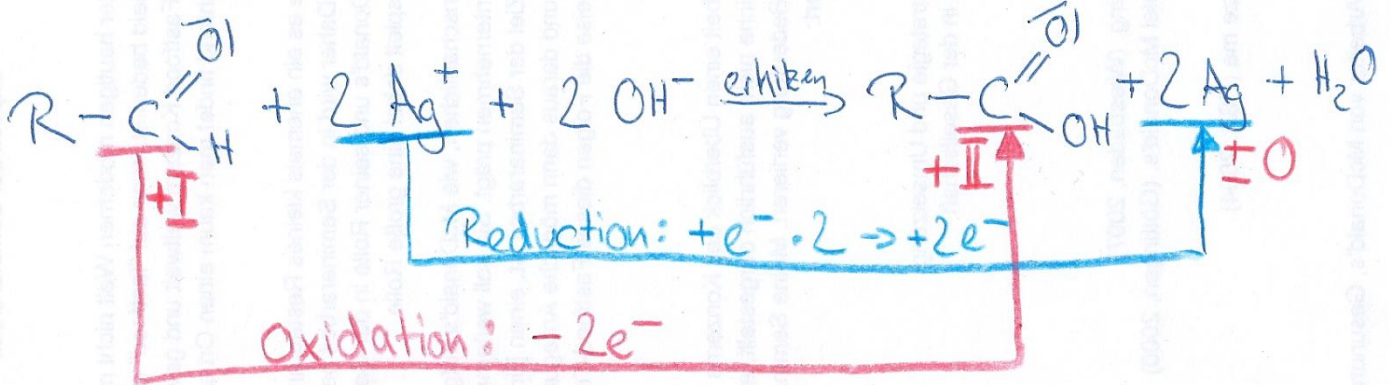 R-C(=O)-H + 2 Ag⁺ + 2 OH⁻ erhitzen → R-C(=O)-OH + 2 Ag + H₂O
+I +II ±0
Reduction: +e⁻ ·2 → +2e⁻
Oxidation: -2e⁻